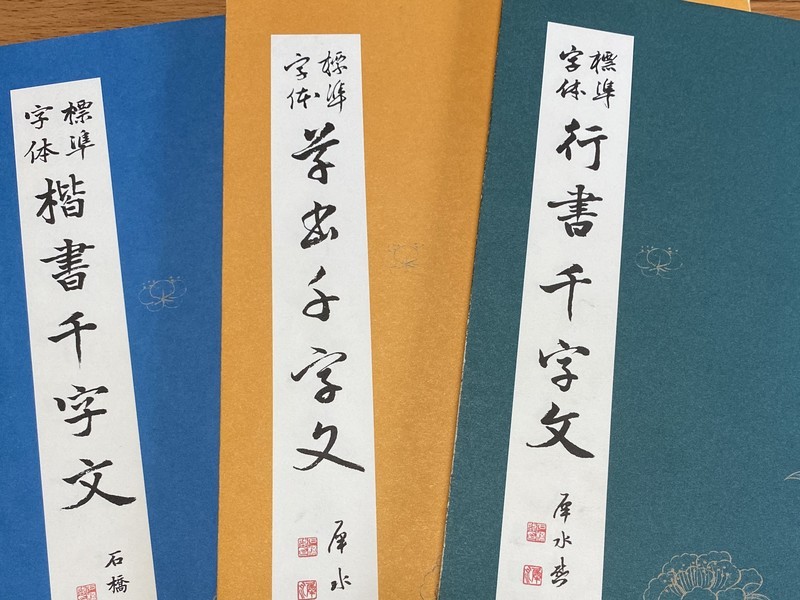 標準
字体
楷書千字文
石橋
標準
字体
草書千字文
犀水
標準
字体
行書千字文
犀水書